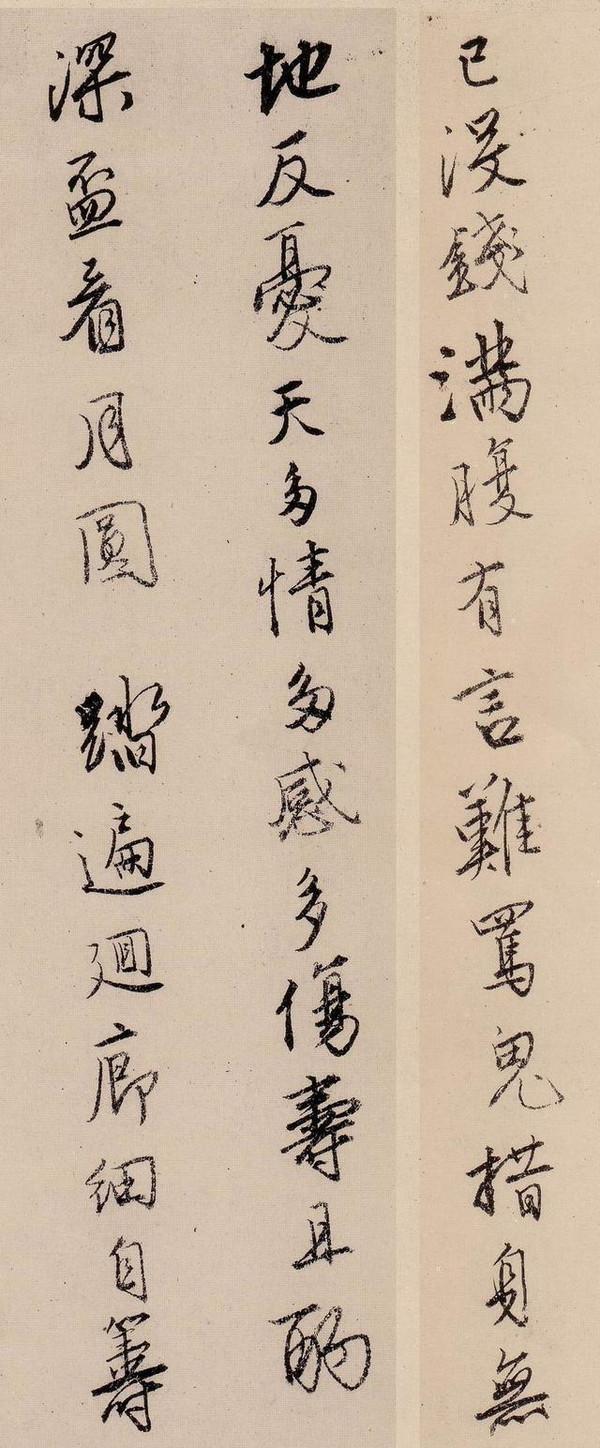 已没錢满腹有言難罵鬼措身無
地反憂天多情多感多傷壽且酌
深盃看月圓 踏遍廻廊細自籌